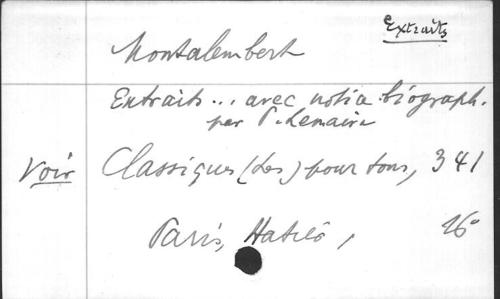 Extraits
Montalembert
Extraits... avec notice biograph.
par P. Lemaire
Voir Classiques (Les) pour tous, 341
Paris, Hatier, 16°